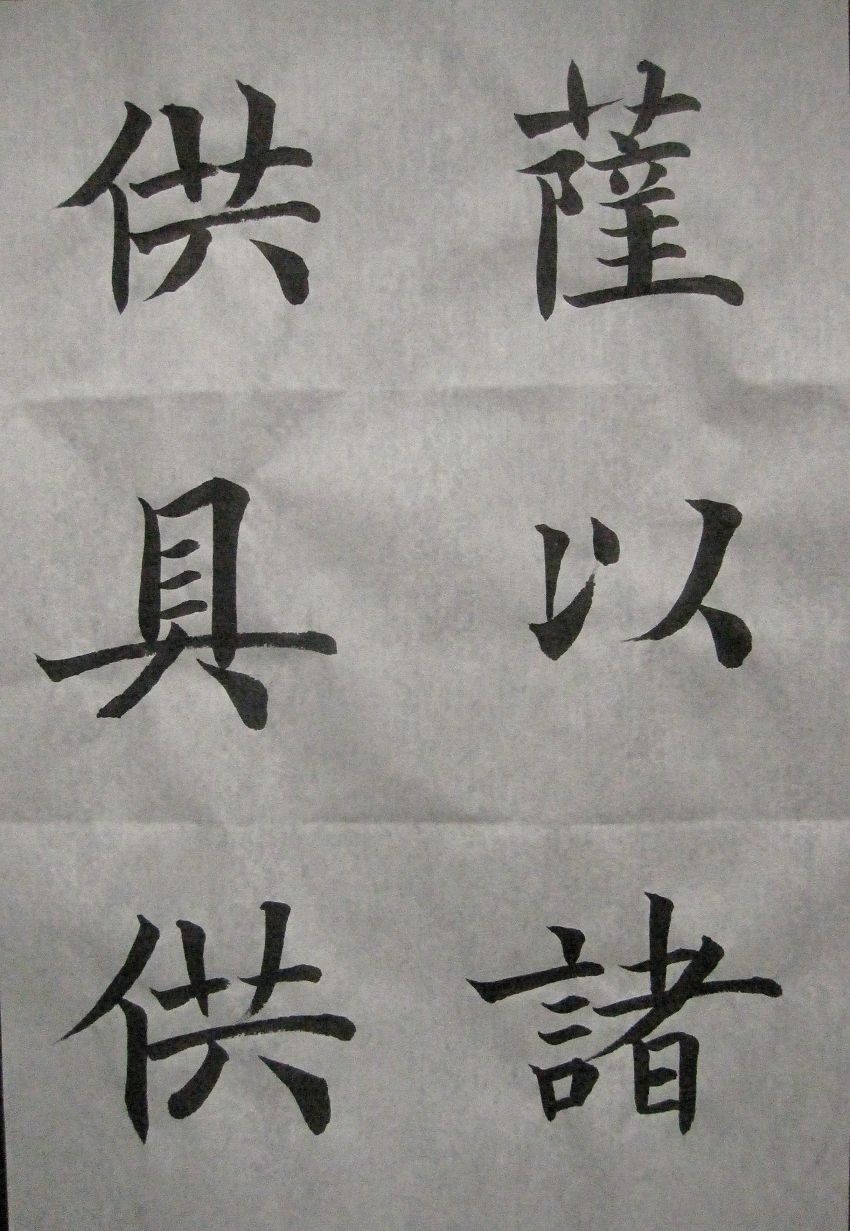 薩以諸
供具供